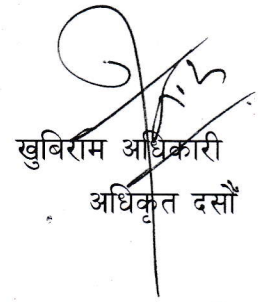 खुबिराम अधिकारी
अधिकृत दसौं